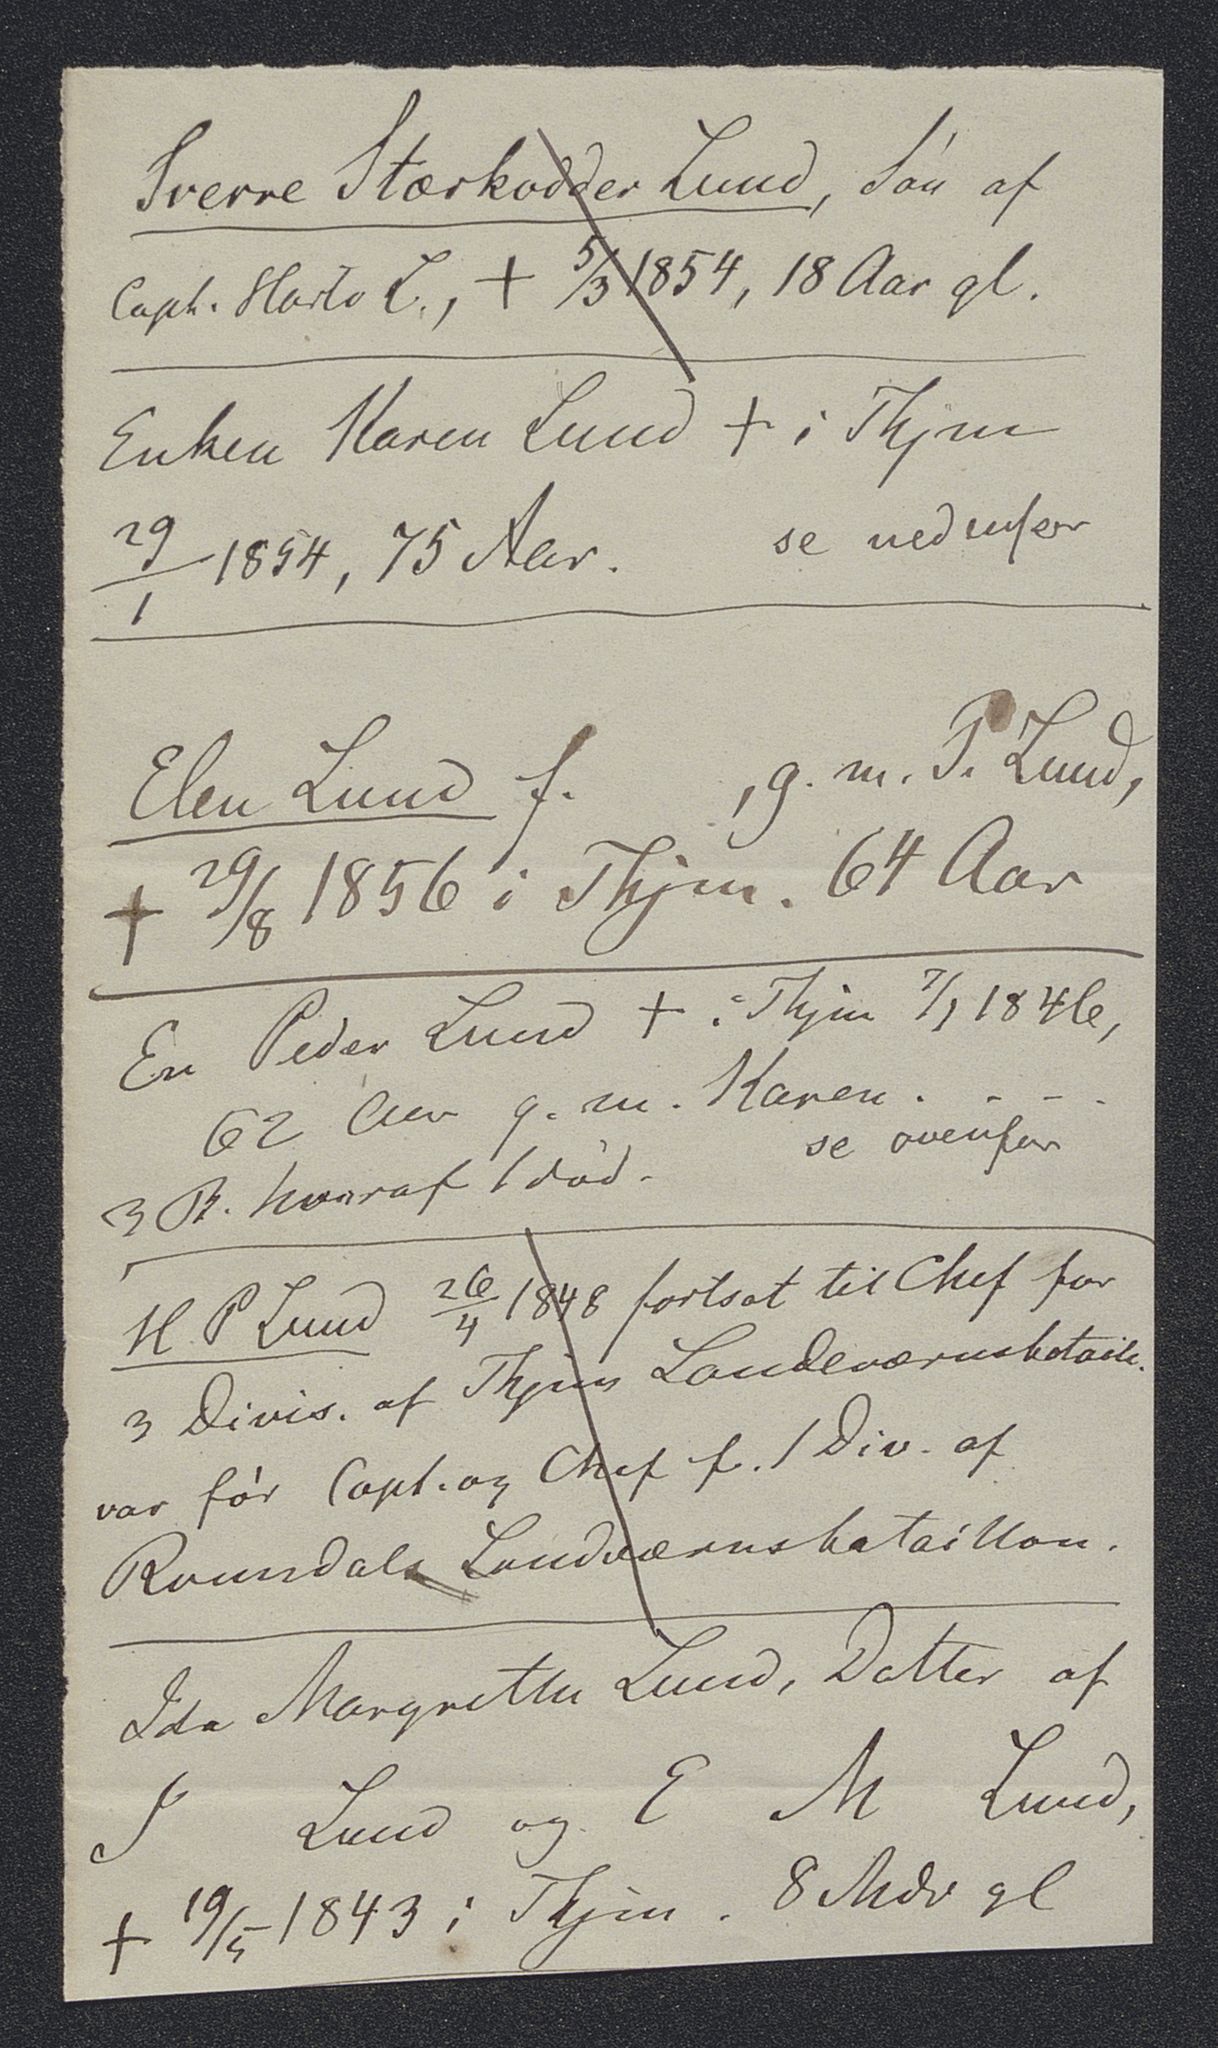 Sverre Stærkodder Lund, Søn af
Capt. Harto L., + 5/3 1854, 18 Aar gl.
Enken Karen Lund + i Thjm
29/1 1854, 75 Aar. se nedenfor
Elen Lund f. , g. m. P. Lund,
+ 29/8 1856 i Thjm. 64 Aar
En Peder Lund + i Thjm 7/1 1846,
62 Aar g. m. Karen . . - .
se ovenfor
3 B. hvoraf 1 død.
H P Lund 26/4 1848 fortsat til Chef for
3 Divis. af Thjms Landeværnsbataill.
var før Capt. og Chef f. 1 Div. af
Romsdals Landværnsbataillon.
Ida Margrethe Lund, Datter af
J Lund og E M Lund,
+ 19/5 1843 i Thjm. 8 Mdr gl